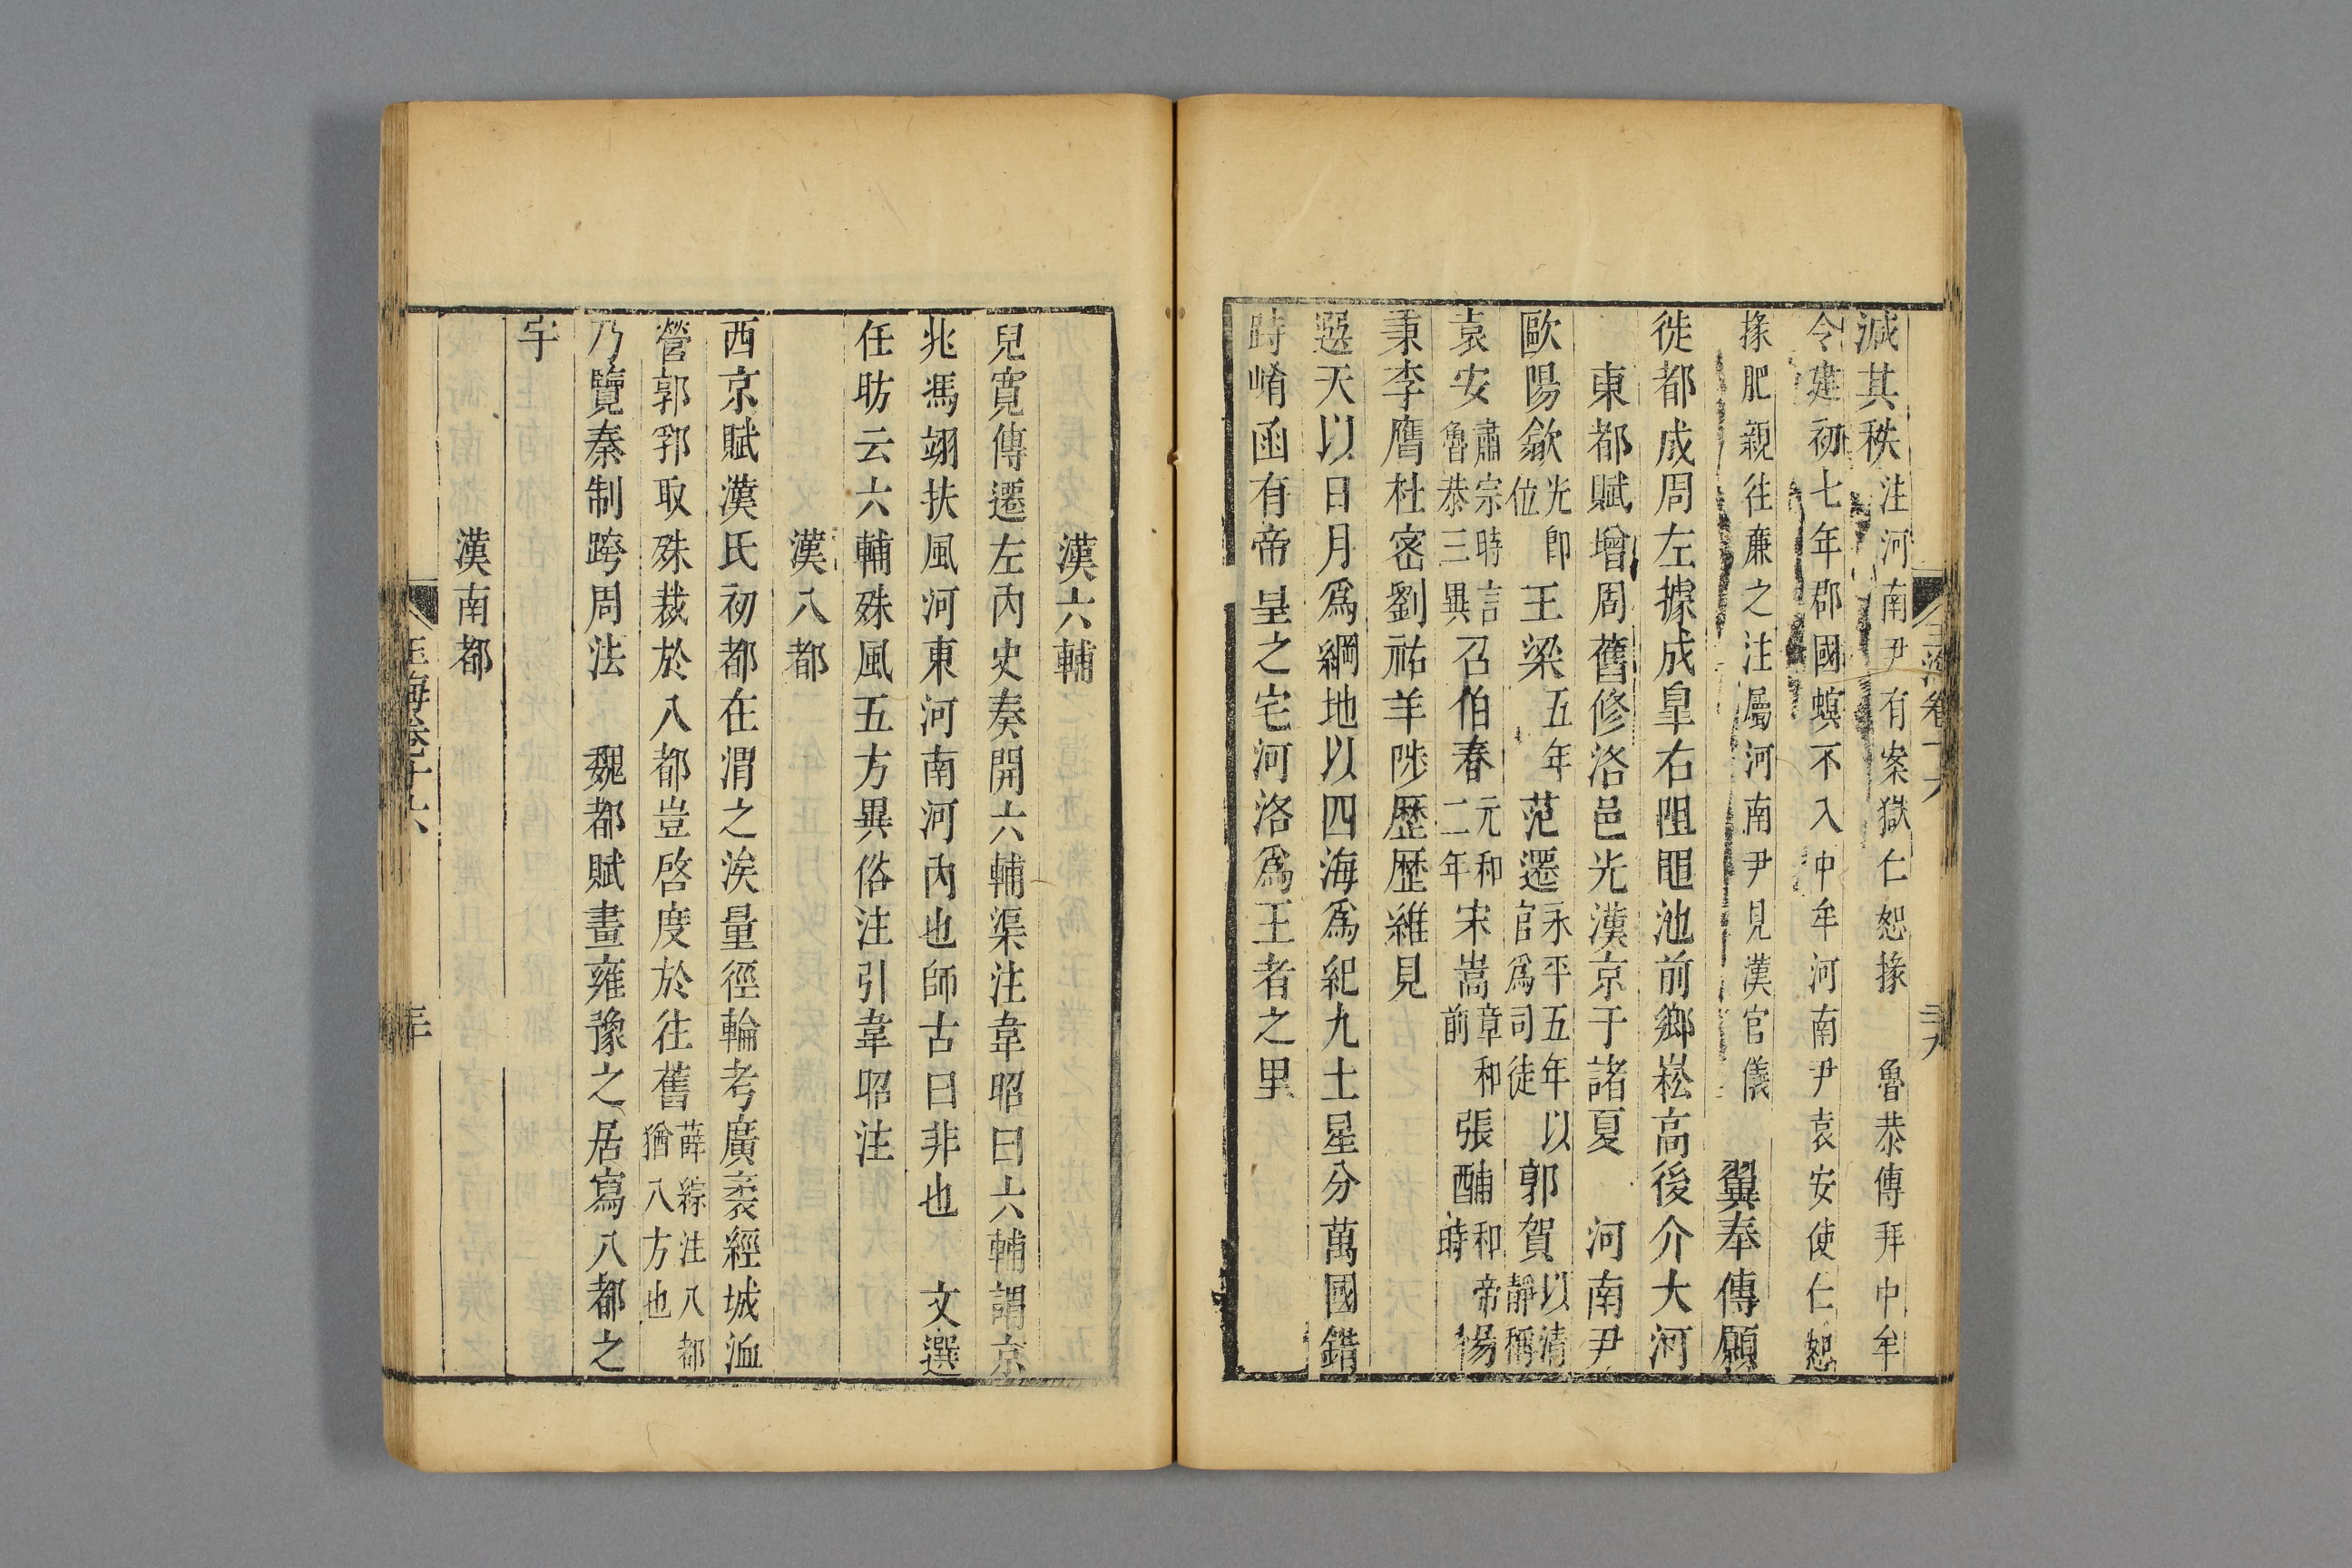 玉海卷十六 三九
減其秩注河南尹有案獄仁恕掾 魯恭傳拜中牟
令建初七年郡國螟不入中牟河南尹袁安使仁恕
掾肥親往廉之注屬河南尹見漢官儀 翼奉傳願
徙都成周左據成皐右阻黽池前鄉崧高後介大河
東都賦增周舊修洛邑光漢京于諸夏 河南尹
歐陽歙光卽位王梁五年范遷永平五年以官爲司徒郭賀以清靜稱
袁安肅宗時言魯恭三異召伯春元和二年宋嵩章和前張酺和帝時楊
秉李膺杜密劉祐羊陟歷歷維見
選天以日月爲綱地以四海爲紀九土星分萬國錯
跱崤函有帝皇之宅河洛爲王者之里
漢六輔
兒寛傳遷左內史奏開六輔渠注韋昭曰六輔謂京
兆馮翊扶風河東河南河內也師古曰非也 文選
任昉云六輔殊風五方異俗注引韋昭注
漢八都
西京賦漢氏初都在渭之涘量徑輪考廣袤經城洫
營郭郛取殊裁於八都豈啓度於往舊薛綜注八都猶八方也
乃覽秦制跨周法 魏都賦畫雍豫之居寫八都之
宇
漢南都
玉海卷十六 三十